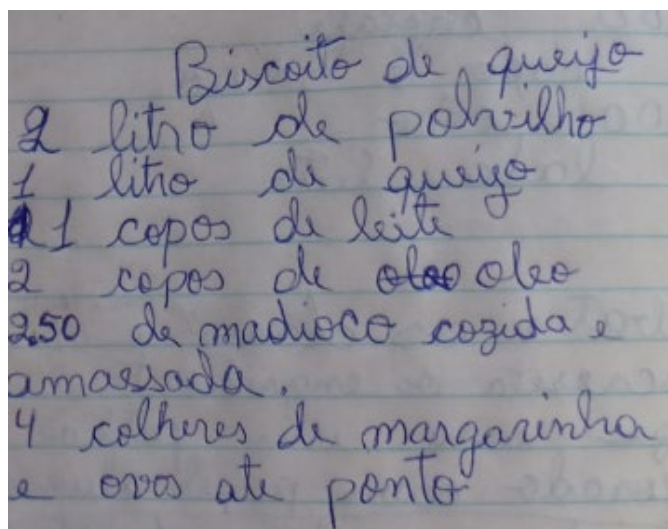 Biscoito de queijo
2 litro de polvilho
1 litro de queijo
1 copos de leite
2 copos de oleo
250 de madioco cozida e
amassada.
4 colheres de margarinha
e ovos ate ponto